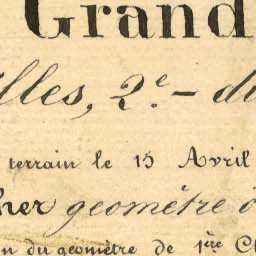 Grand
lles, 2e - du
terrain le 15 Avril
her géomètre à
n du géomètre de 1ère Cl